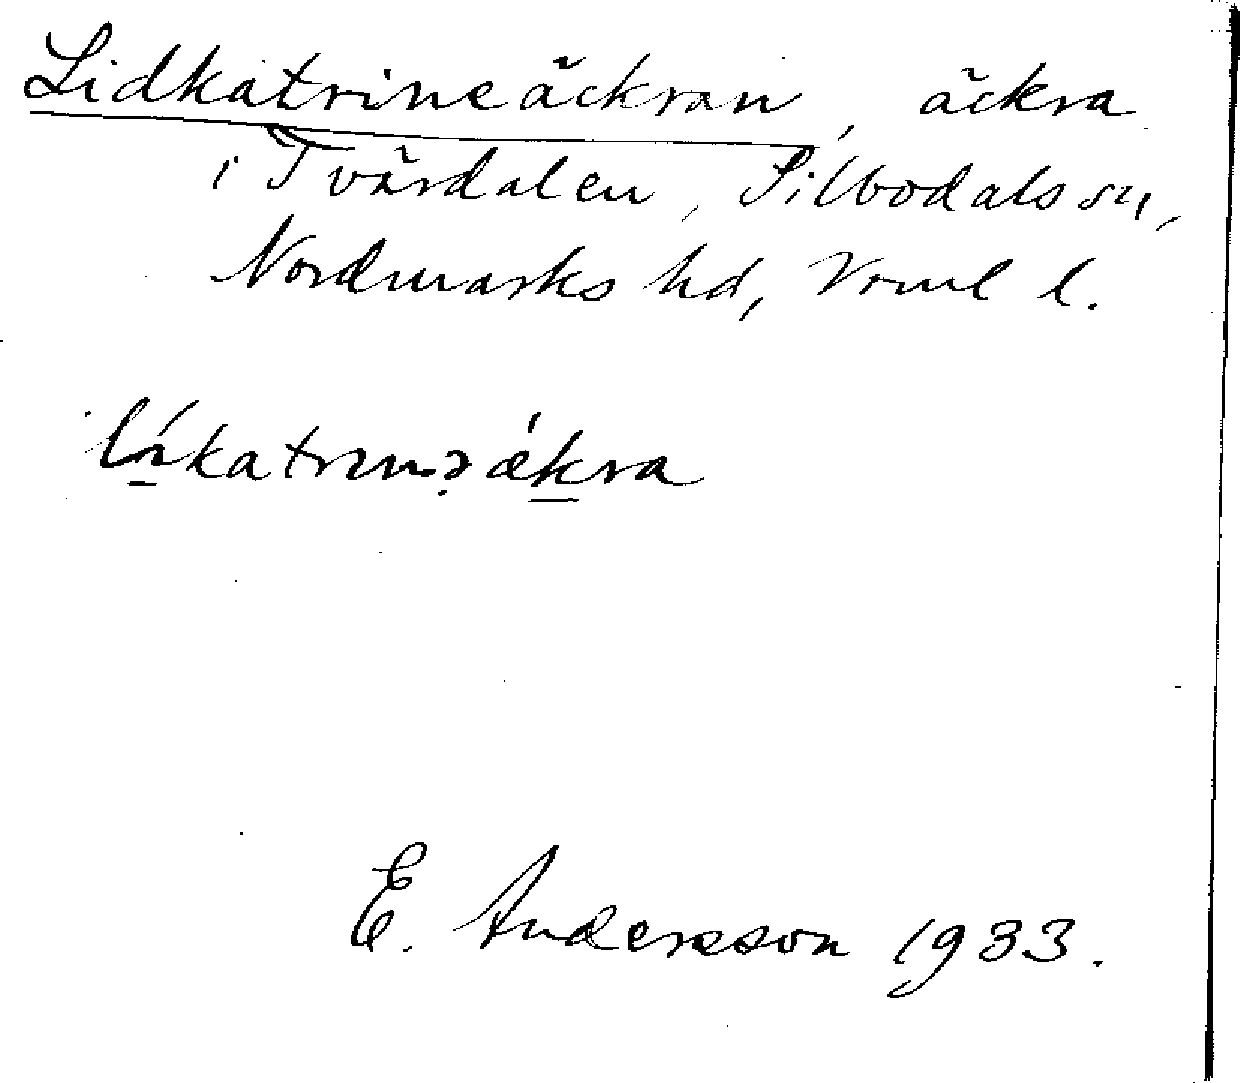 Lidkatrineäckran, äckra
i Tvärdalen, Silbodals sn,
Nordmarks hd, Vrml l.
E. Andersson 1933.